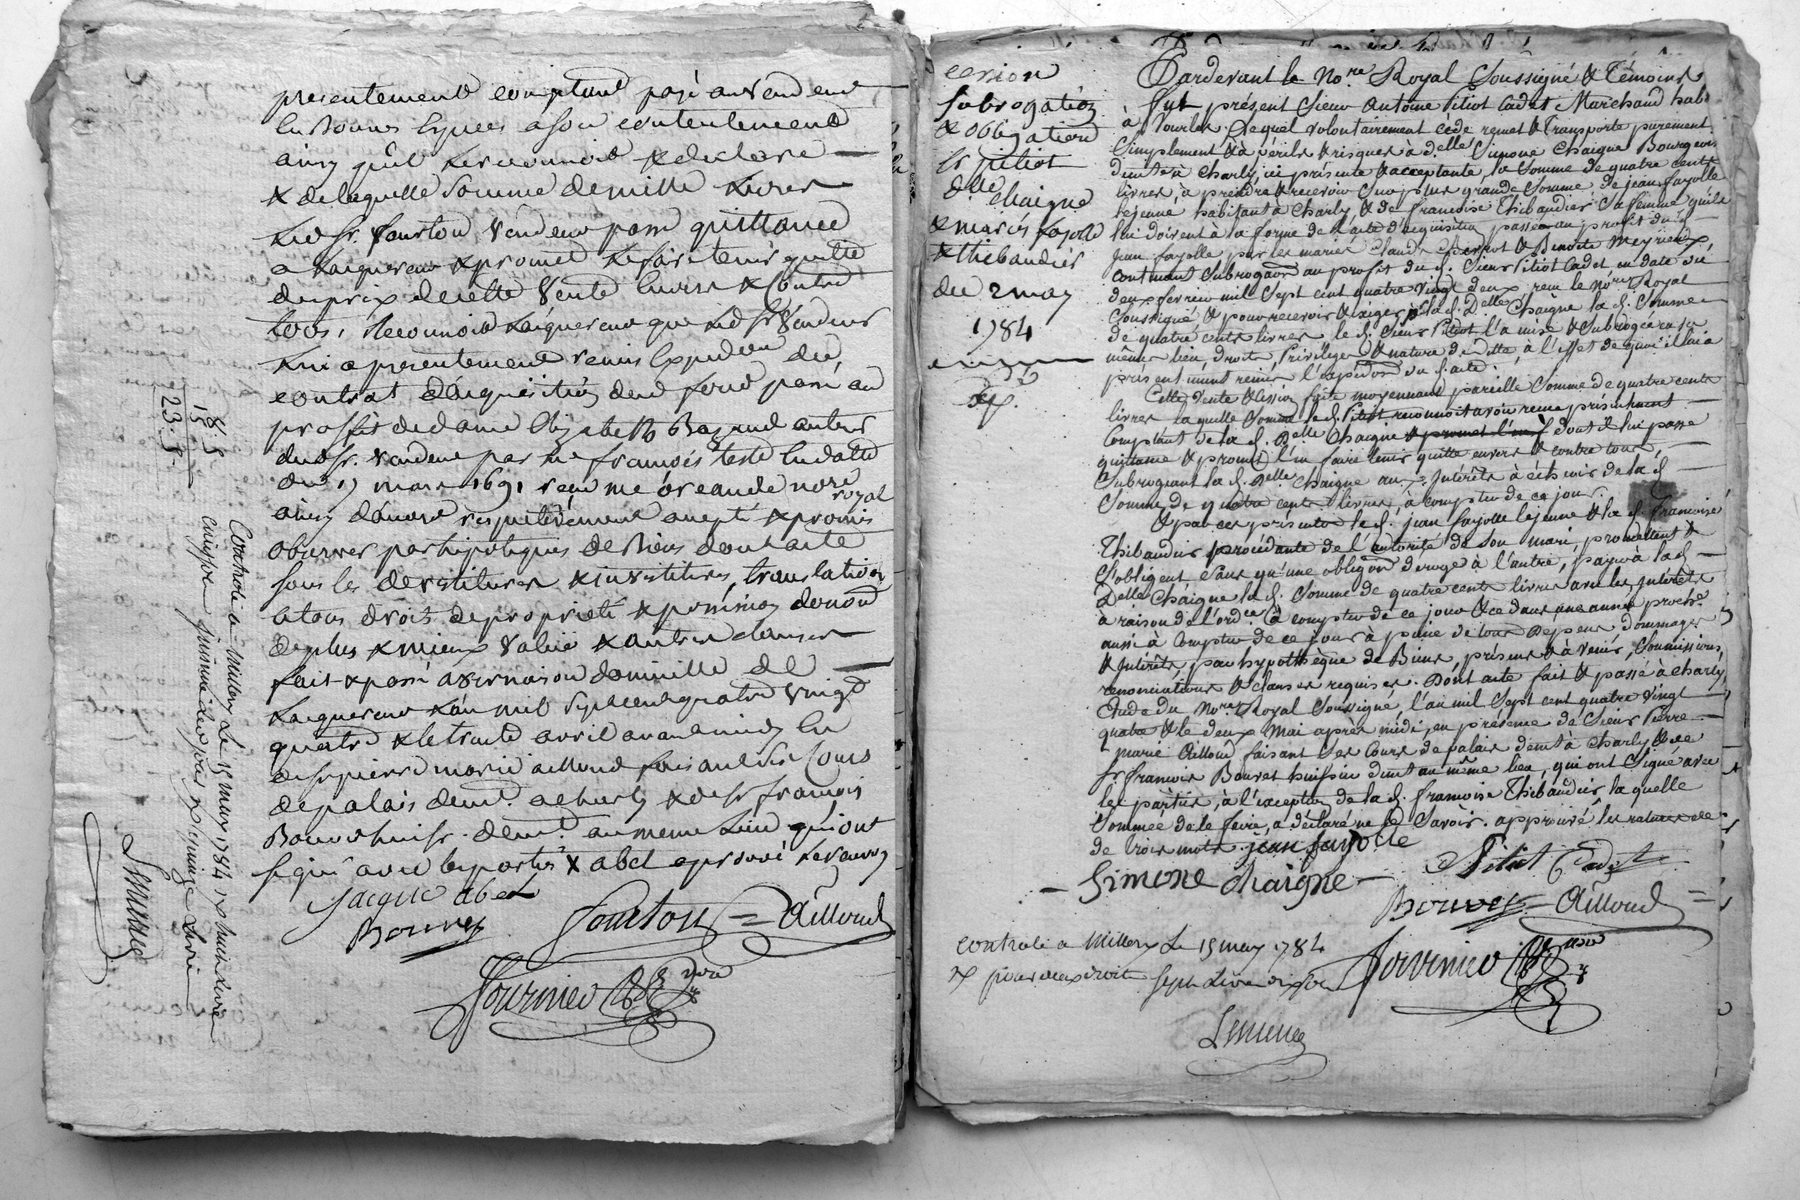 presentement comptant payé au vendeur
en bonnes especes a son contentement
ainsy qu'il le reconnoit & declare
& de laquelle somme de mille livres
led. sr. fourton, vendeur passe quittance
a lacquereur & promet le faire tenir quitte
du prix de cette vente envers & contre
tous, Reconnoit lacquereur que led. sr. vendeur
lui a presentement remis expedon. du
contrat d'acquisition dud. fond passé au
proffit de dame Elizabeth auteur
dud. sr. vendeur par me françois teste en datte
du 17 mars 1691 reçu me oreande nore. royal
ainsy convenu respectivement accepté & promis
observer par hipoteques de Biens dont acte
sous les devestitures & investitures, translation
de tous droits de proprieté & possession donon
de plus & mieux value & autres clauses
fait & passé a vernaison domicille de
lacquereur l'an mil sept cent quatre vingt
quatre & le trente avril avant midy en
de sr pierre marie ailloud faisant ses Cours
de palais demt. a charly & de sr françois
Bouvet huissr. demt. au meme lieu qui ont
signé avec les parties & abel aprouvé
jacque abel
Bouvet fourton = Ailloud
fournier nore
18: 5
15
23: 5
Controlé a Millery le 15 may 1784
Lemune
cession
subrogation
& obligation
sr pitiot
dlle chaigne
& mariés fayolle
& thibaudier
du 2 may
1784
Ex.
Pardevant le Nore. Royal Soussigné & Témoins
fut présent sieur antoine Pitiot Cadet Marchand habt
à Vourles, Lequel volontairement cède remet & transporte purement
simplement & à périls & risques à delle Simone Chaigne Bourgeoise
demte à Charly, ici présente & acceptante, la somme de quatre cents
livres, à prendre & recevoir sur plus grande somme, de jean fayolle
lejeune habitant à Charly, & de francoise Thibaudier sa femme qu'ils
lui doivent à la forme de l'acte d'acquisition passé au profit dud.
jean fayolle par les mariés Claude & Benoite Meyrieux,
contenant Subrogaon au profit du d. Sieur Pitiot Cadet en date du
deux fevrier mil sept cent quatre vingt deux reçu le nore Royal
Soussigné & pour recevoir & exiger par la d. Delle Chaigne la d. somme
de quatre cents livres le d. Sieur Pitiot l'a mise & subrogée en ses
mêmes lieu, droits, Privilége & nature de Dette, à l'effet de quoi il lui a
présentement remis l'expédon du d. acte.
Cette vente & cession faite moyennant pareille Somme de quatre cents
livres laquelle somme le d. Pitiot reconnoit avoir reçue présentement
Comptant de la d. Delle Chaigne & promet l'en f dont il lui passe
quittance & promet l'en faire tenir quitte envers & contre tous,
Subrogeant la d. Delle Chaigne aux Intérêts à échoir de la d.
Somme de quatre cents livres, à compter de ce jour.
& par ces présentes le d. jean fayolle lejeune & la d. francoise
Thibaudier procédante de l'autorité de Son mari, promettent &
s'obligent, sans qu'une obligon deroge à l'autre, payer à la d.
Delle Chaigne la d. somme de quatre cents livres avec les intérêts
à raison de l'ordce. à compter de ce jour & ce dans une année proche.
aussi à Compter de ce jour à peine de tous Dépens dommages
& intérêts, par hypothèque de Biens, présens & à venir, Soumissions,
renonciations & clauses requises. Dont acte fait & passé à charly,
Etude du Nore. Royal Soussigné, l'an mil Sept cent quatre vingt
quatre & le deux Mai après midi, en présence de Sieurs Pierre
Marie Ailloud faisant ses Cours de palais demt à Charly & de
sr francois Bouvet huissier demt au même lieu, qui ont Signé avec
les parties, à l'exception de la d. francoise Thibaudier, laquelle
Sommée de le faire, a déclaré ne le Savoir. approuvé les ratures de
de trois mots. jean fayolle
Simone Chaigne Pitiot Cadet
Bouvet = Ailloud =
controlé a Millery Le 15 may 1784
R pour deux droits sept Livres dix sou
fournier nore
Lemune